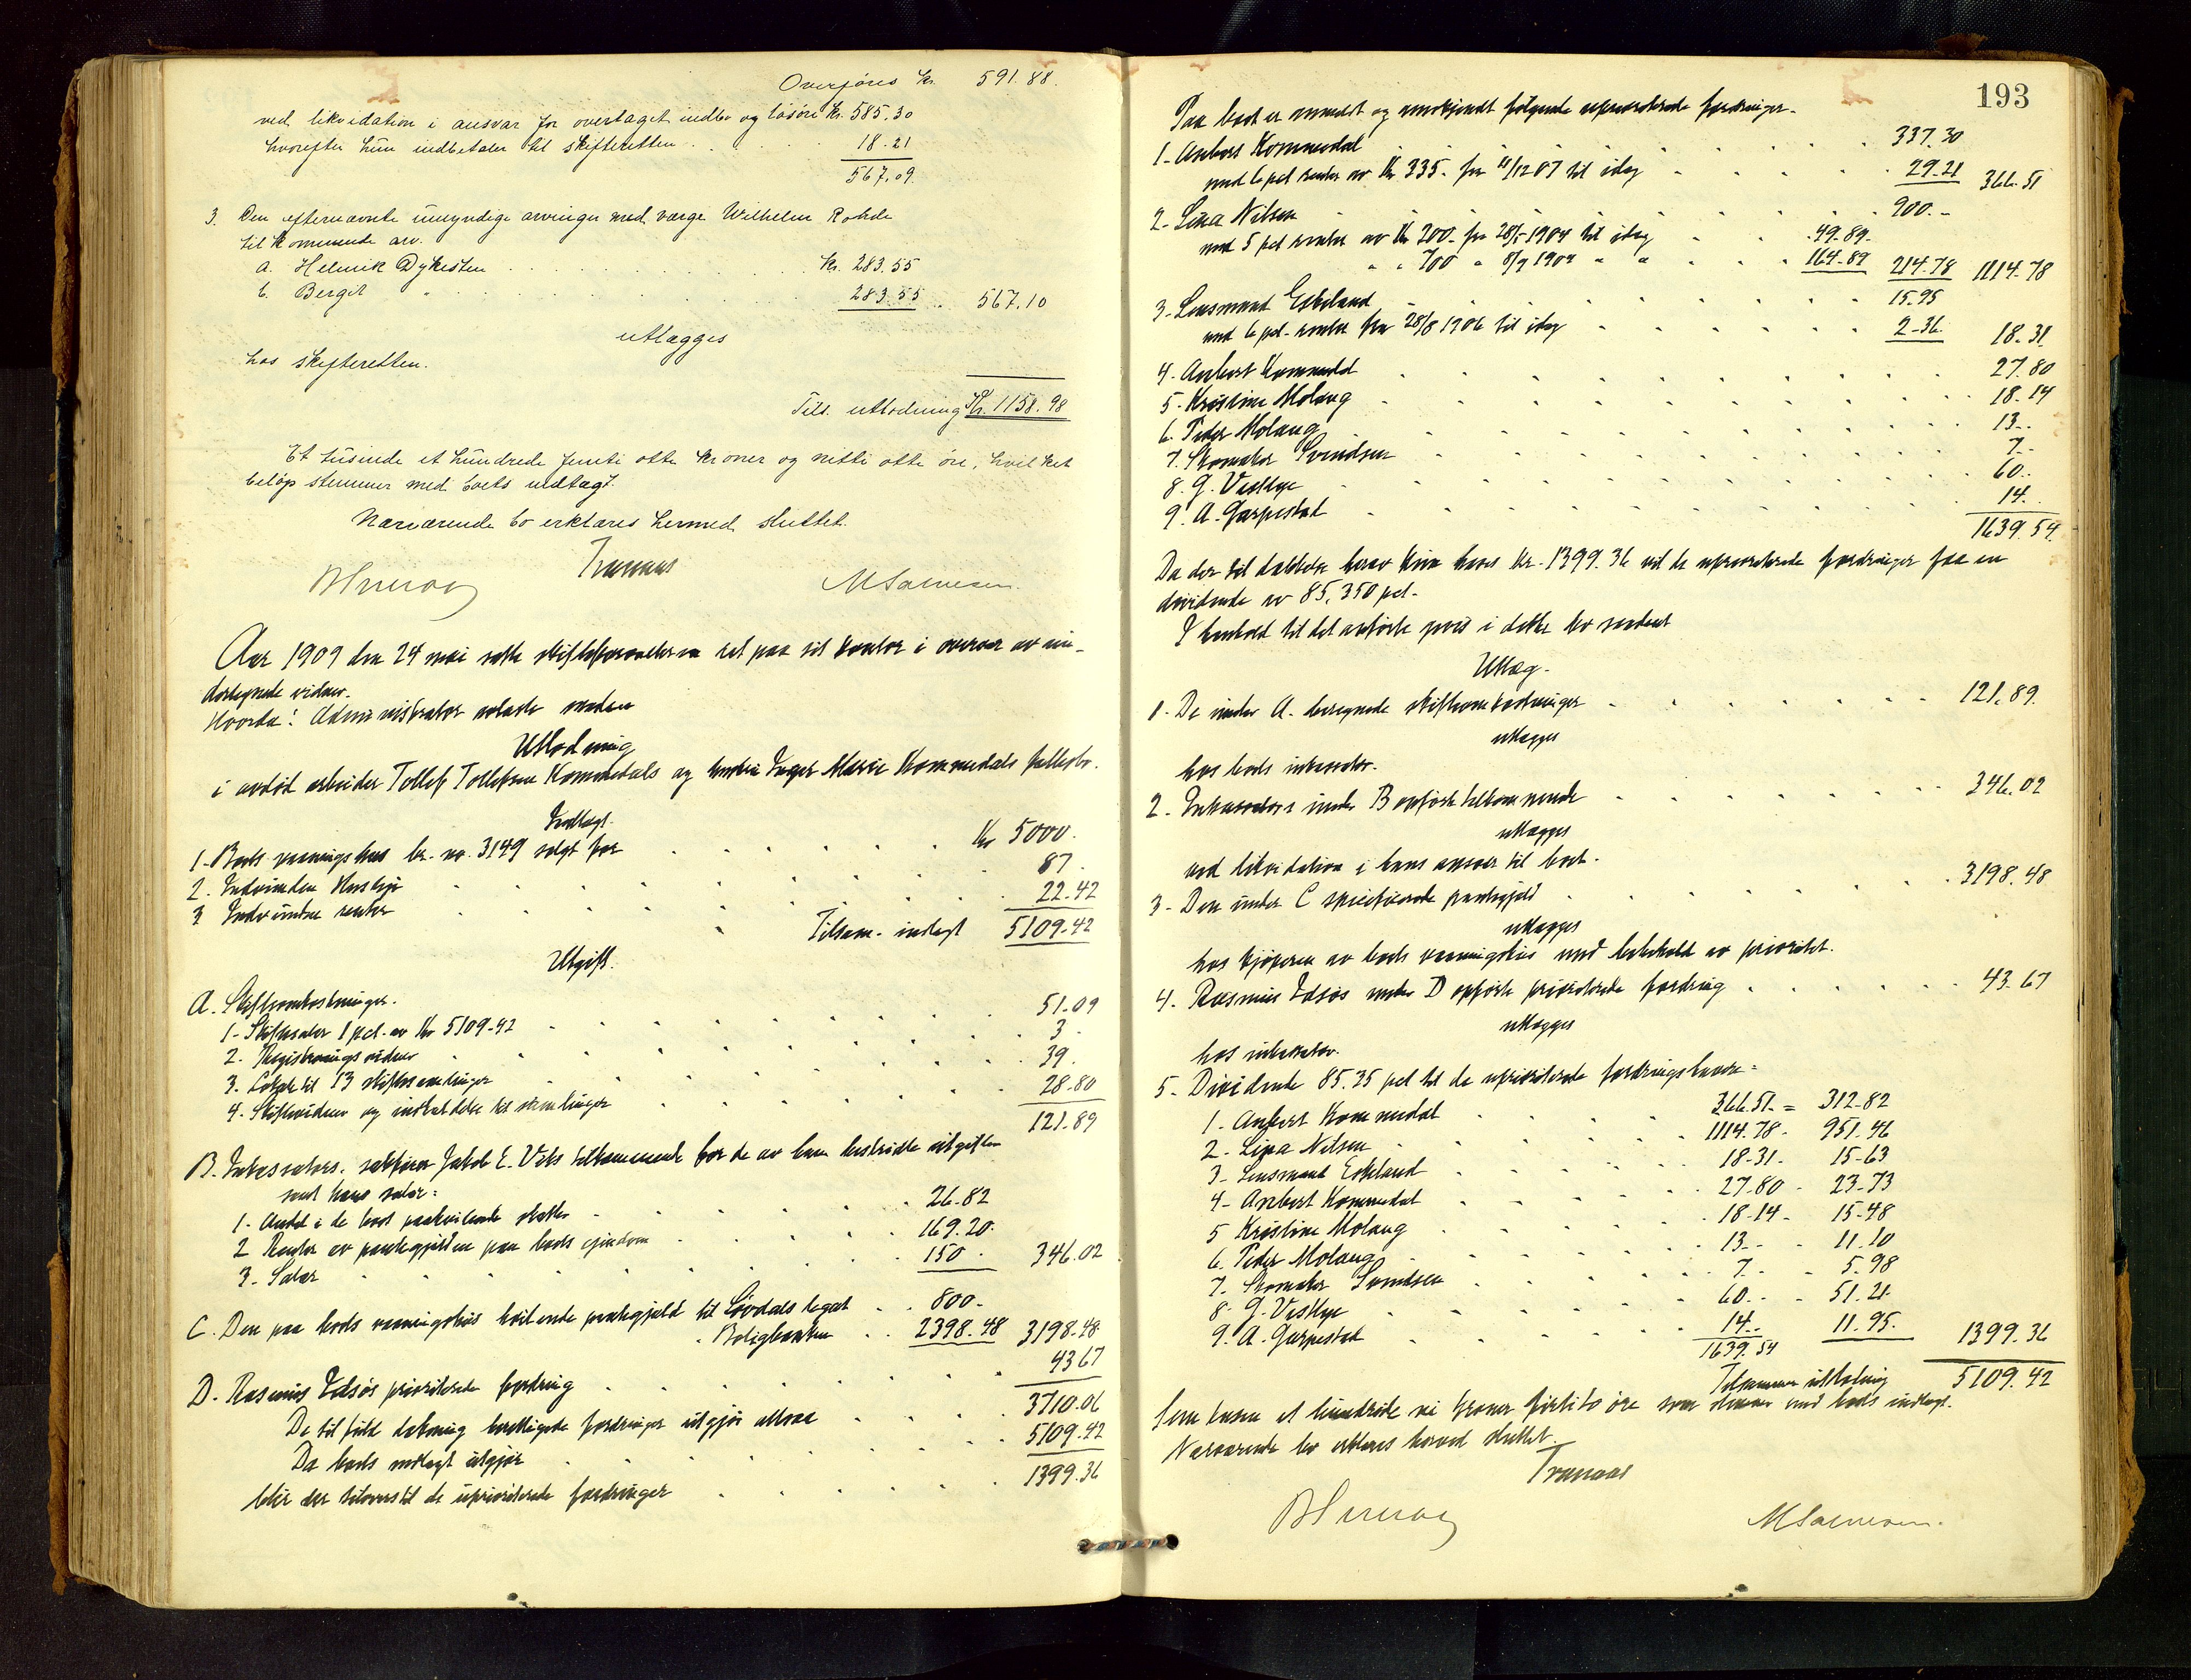 Overføres kr. 591.88.
ved likvidation i ansvar for overtaget indbo og løsøre kr. 585.30
hvorefter hun indbetaler til skifteretten . . 18.21
567.09.
3. Den efternævnte umyndige arvinger med værge Wilhelm Rohde
tilkommende arv.
a. Helmik Dykesten . . . kr. 283.55
b. Bergit " . . . 283.55 . 567.10
utlægges
hos skifteretten.
Tils. utlodning Kr. 1158.98
Et tusinde et hundrede femti otte kroner og nitti otte øre, hvilket
beløp stemmer med boets indtægt.
Nærværende bo erklæres hermed sluttet.
Tranaas
M Salvesen.
Aar 1909 den 24 mai satte skifteforvalteren ret paa sit kontor i overvær av un-
dertegnede vidner.
Hvorda: Administrator avlagde saadan
Utlodning
i avdød arbeider Tollef Tollefsen Kommedals og hustru Inger Marie Kommedals fællesbo.
Indtægt.
1. Boets vaaningshus br. no. 3149 solgt for . . . Kr 5000.
2. Indvunden husleje . . . 87.
3 Indvundne renter . . . 22.42
Tilsam. indtægt 5109.42
Utgift.
A. Skifteomkostninger.
1. Skiftesalær 1 pct. av Kr 5109.42 . . . 51.09
2. Registreringsvidner . . . 3.
3. Lokale til 13 skiftesamlinger . . . 39.
4. Skiftevidner og indkaldelse til samlinger . . . 28.80
121.89
B. Inkassators, sakfører Jakob E. Viks tilkommende for de av ham bestridte utgifter
samt hans salær:
1. Andel i de boet paahvilende skatter . . . 26.82
2 Renter av pantegjælden paa boets eiendom . . . 169.20.
3. Salær . . . 150. 346.02
C. Den paa boets vaaningshus hvilende pantegjæld til Løvdals legat . . 800.
" Boligbanken . . 2398.48 3198.48
D. Rasmus Idsøs prioriterede fordring . . . 43 67
De til fuld dækning berettigede fordringer utgjør altsaa . . . 3710.06
Da boets indtægt utgjør . . . 5109.42
blir der tilovers til de uprioriterede fordringer . . . 1399.36
193
Paa boet er anmeldt og anerkjendt følgende uprioriterede fordringer.
1. Anbert Kommedal . . . 337.30
med 6 pct renter av Kr 335. fra 11/12 07 til idag . . . 29.21 366.51
2. Lina Nilsen . . . 900.-
med 5 pct renter av Kr 200. fra 28/5 1904 til idag . . 49.89.
" " 700 " 8/9 1904 " " . . 164.89 214.78 1114.78
3. Lensmand Eskeland . . . 15.95
med 6 pct. renter fra 28/8 1906 til idag . . . 2.36. 18.31.
4. Anbert Kommedal . . . 27.80
5. Kristine Molaug . . . 18.14
6. Peder Molaug . . . 13..
7. Skomaker Svendsen . . . 7..
8. G. Vestlye . . . 60.
9. A. Garpestad . . . 14.
1639.54
Da der til dækkelse herav kun haves kr. 1399.36 vil de uprioriterede fordringer faa en
dividende av 85,350 pct.
I henhold til det anførte gjøres i dette bo saadant
Utlæg.
1. De under A. beregnede skifteomkostninger . . . 121.89.
utlægges
hos boets inkassator.
2. Inkassators under B opførte tilkommende . . . 346.02
utlægges
ved likvidation i hans ansvar til boet.
3. Den under C specificerede pantegjæld . . . 3198.48
utlægges
hos kjøperen av boets vaaningshus med bibehold av prioritet.
4. Rasmus Idsøs under D opførte prioriterede fordring . . . 43.67
utlægges
hos inkassator.
5. Dividende 85.35 pct til de uprioriterede fordringshavere:
1. Anbert Kommedal . . . 366.51. = 312.82
2. Lina Nilsen . . . 1114.78. 951.46
3. Lensmand Eskeland . . . 18.31. 15.63
4. Anbert Kommedal . . . 27.80 . 23.73
5 Kristine Molaug . . . 18.14 . 15.48
6. Peder Molaug . . . 13.. . 11.10
7. Skomaker Svendsen . . . 7.. . 5.98
8. G. Vestlye . . . 60.. . 51.21.
9. A. Garpestad . . . 14.. 11.95. 1399.36
1639.54
Tilsammen utlodning 5109.42
Fem tusen et hundrede ni kroner firtito øre som stemmer med boets indtægt.
Nærværende bo erklæres herved sluttet.
Tranaas
M Salvesen.